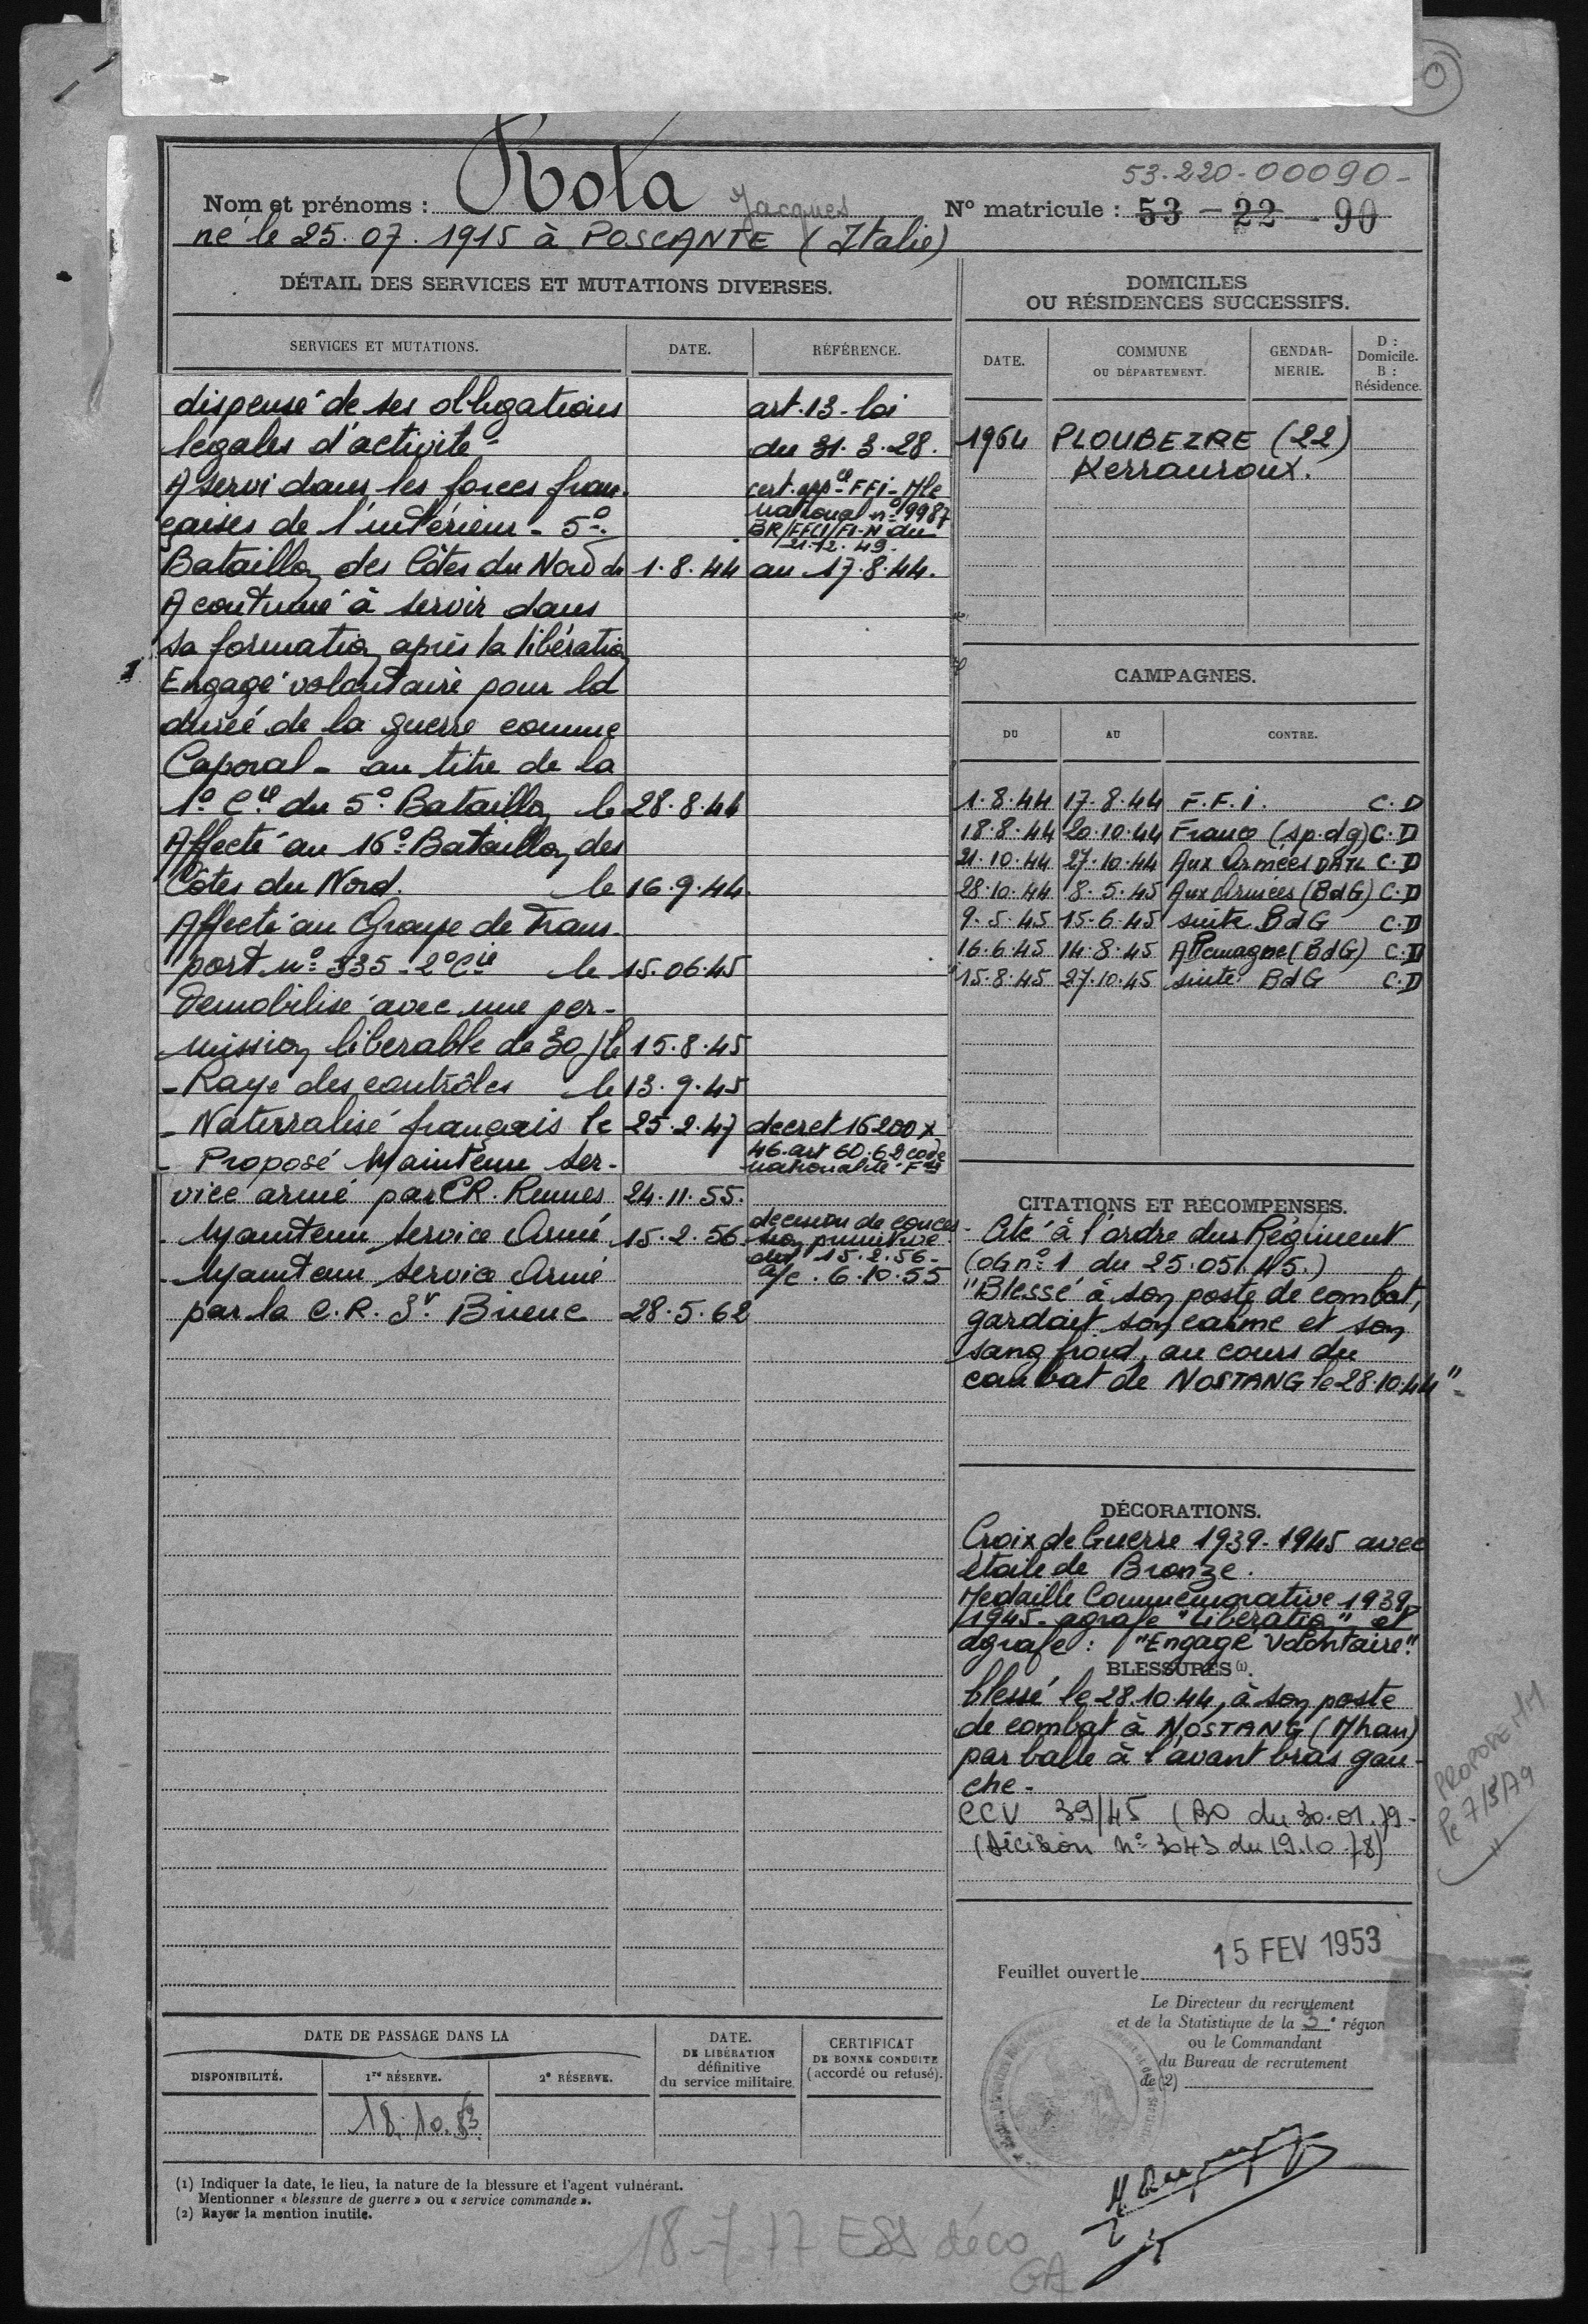 53-220-00090-
Nom et prénoms : Rota Jacques
N° matricule : 53 - 22 - 90
né le 25.07.1915 à POSCANTE (Italie)
DÉTAIL DES SERVICES ET MUTATIONS DIVERSES.
SERVICES ET MUTATIONS. DATE. RÉFÉRENCE.
dispensé de ses obligations art.13-loi
légales d'activité- du 31.3.28.
A servi dans les forces fran-
cert. app ce FFI-Mle
çaises de l'intérieur - 5°
national n° 19987
BR/FFCI/FI-N du
21.12.49.
Bataillon des Côtes du Nord du 1.8.44 au 17.8.44.
A continué à servir dans
sa formation après la libération
Engagé volontaire pour la
durée de la guerre comme
Caporal - au titre de la
1° Cie du 5° Bataillon le 28.8.44
Affecté au 16° Bataillon des
Côtes du Nord. le 16.9.44
Affecté au Groupe de Trans-
port n° 535 - 2° Cie le 15.06.45
Demobilisé avec une per-
mission libérable de 30 j le 15.8.45
- Rayé des contrôles le 13.9.45
- Naturalisé français le 25.2.47 decret 16200 x
46-art 60.62 code
nationalité Fse
- Proposé Maintenu Ser-
vice armé par CR. Rennes 24.11.55.
- Maintenu Service Armé 15.2.56
decision de conces-
sion primitive
du 15.2.56-
a/c. 6.10.55
- Maintenu Service Armé
par la C.R. St. Brieuc 28.5.62
DATE DE PASSAGE DANS LA
DISPONIBILITÉ. 1re RÉSERVE. 2e RÉSERVE.
DATE.
DE LIBÉRATION
définitive
du service militaire.
CERTIFICAT
DE BONNE CONDUITE
(accordé ou refusé).
DOMICILES
OU RÉSIDENCES SUCCESSIFS.
DATE.
COMMUNE
OU DÉPARTEMENT.
GENDAR-
MERIE.
D :
Domicile.
B :
Résidence.
1964 PLOUBEZRE (22)
Kerrauroux.
CAMPAGNES.
DU AU CONTRE.
1.8.44 17.8.44 F.F.i. C.D
18.8.44 20.10.44 France (sp.dg) C.D
21.10.44 27.10.44 Aux Armées DATL C.D
28.10.44 8.5.45 Aux Armées (BdG) C.D
9.5.45 15.6.45 suite BdG C.D
16.6.45 14.8.45 Allemagne (BdG) C.D
15.8.45 27.10.45 suite BdG C.D
CITATIONS ET RÉCOMPENSES.
Cité à l'ordre du Régiment
(OG n° 1 du 25.05.45.)
"Blessé à son poste de combat,
gardait son calme et son
sang froid, au cours du
combat de NOSTANG le 28.10.44"-
DÉCORATIONS.
Croix de Guerre 1939-1945 avec
étoile de Bronze.
Medaille Commémorative 1939
1945 - agrafe "Libération" et
agrafe : "Engagé Volontaire".
BLESSURES (1).
blessé le 28.10.44, à son poste
de combat à NOSTANG (Mhan)
par balle à l'avant bras gau-
che-
CCV 39/45 (BO du 30.01.79-
(Décision n° 3043 du 19.10.78)
PROPOSE MM
le 7/5/79
Feuillet ouvert le 15 FEV 1953
Le Directeur du recrutement
et de la Statistique de la 3e région
ou le Commandant
du Bureau de recrutement
de (2)
(1) Indiquer la date, le lieu, la nature de la blessure et l'agent vulnérant.
Mentionner « blessure de guerre » ou « service commandé ».
(2) Rayer la mention inutile.
18-7-77 ESS déco
GA